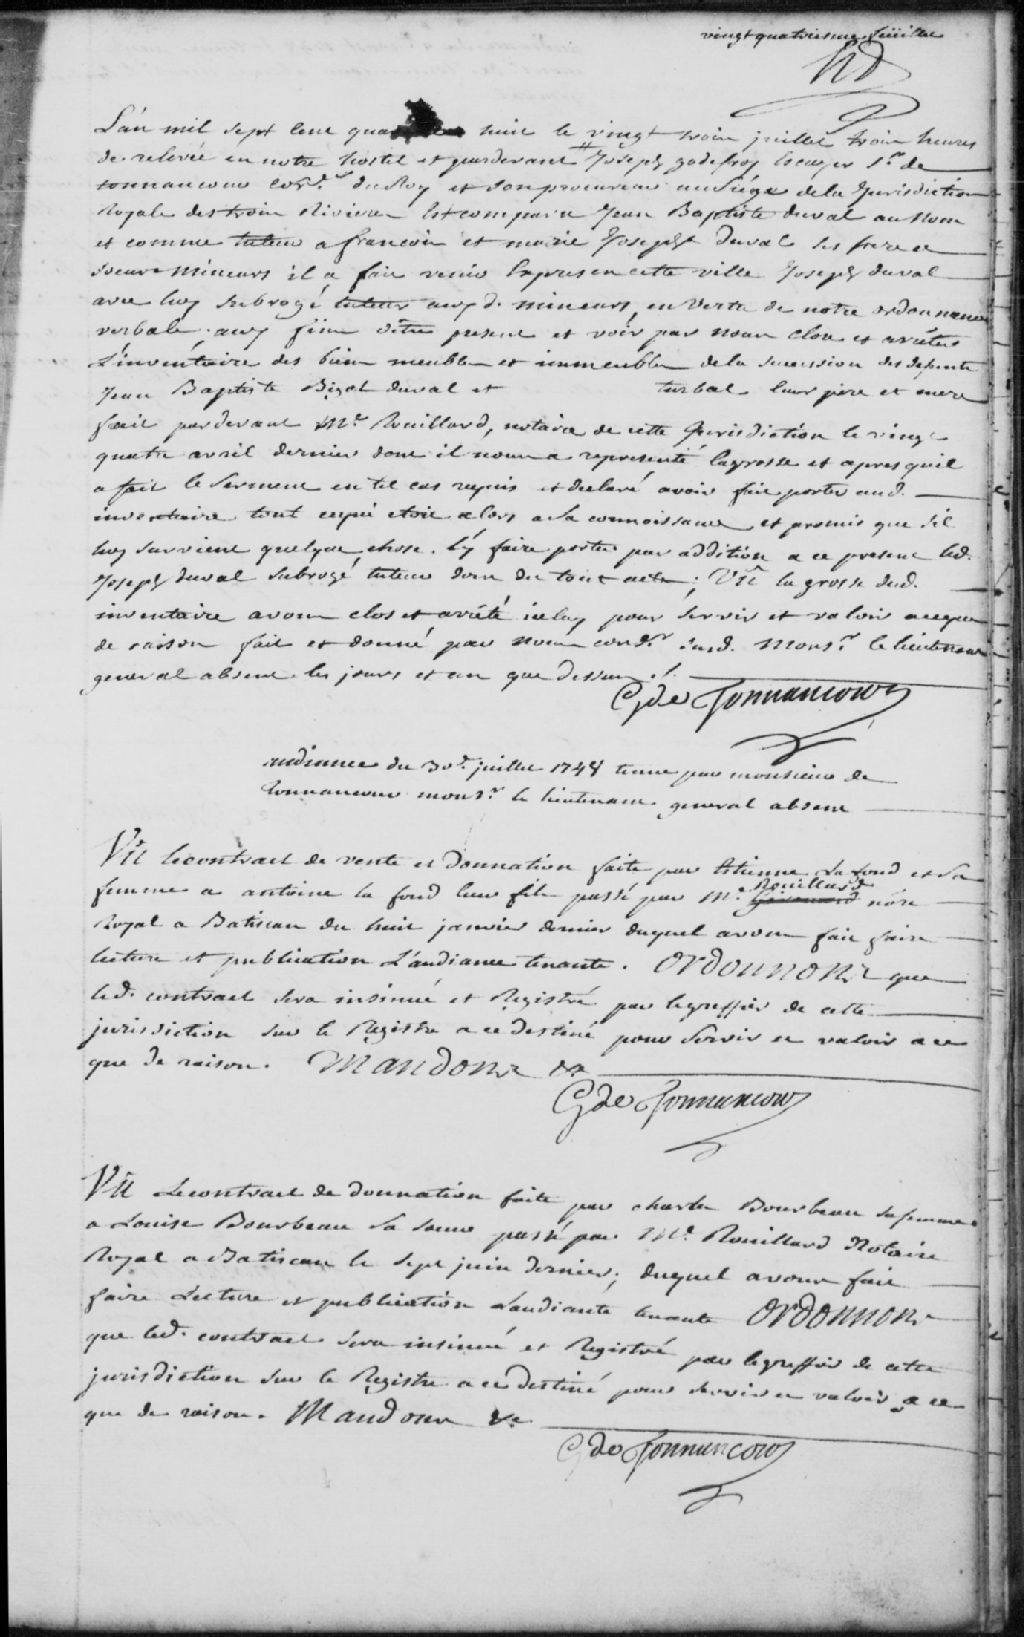 vingt quatriesme feuillet
L'an mil sept cent huit le vingt trois juillet trois heures
de relevée en notre hostel et pardevant Joseph godefroy Escuyer Sr. de
tonnancour conr. du Roy et son procureur au Siége de la Jurisdiction
Royale des trois Rivieres Est comparu Jean Baptiste duval au Nom
et comme tuteur a francois et marie Joseph Duval ses frere et
Soeur Mineurs il a fait venir Expres en cette ville Joseph duval
avec luy Subrogé tuteur auxd. mineurs, en Vertu de notre ordonnance
verbale, aux fins d'être present et voir par nous clore et arréter
L'inventaire des biens meubles et immeubles de la succession des defunts
Jean Baptiste Bigot duval et turbal leurs pere et mere
fait pardevant Mr. Rouillard, notaire de cette Jurisdiction le vingt
quatre avril dernier dont il nous a representé la grosse et apres quil
a fait le Serment en tel cas requis et declaré avoir fait porter aud.
inventaire tout cequi etoit alors a Sa connoissance et promis que s'il
luy survient quelque chose. L'y faire porter par addition a ce present led.
Joseph duval Subrogé tuteur dont du tout acte; Vû la grosse dud.
inventaire avons clos et arrété iceluy pour Servir et valoir aceque
de raison fait et donné par Nous cond. susd. Monsr. le lieutenant
general absent les jours et an que dessus ./.
G de Tonnancour
audience du 30e. juillet 1748 tenue par monsieur de
Tonnancour monsr. le lieutenant general absent
Vû Lecontract de vente et Donnation faite par Etienne La fond et Sa
femme a antoine la fond leur fils passé par Me. Rouillard nore
Royal a Batiscan du huit janvier dernier duquel avons fait faire
lecture et publication L'audiance tenante. Ordonnons que
led. contract Sera insinué et Registré par legreffier de cette
jurisdiction sur le Registre a ce destiné pour Servir et valoir a ce
que de raison. Mandons &a
G de Tonnancour
Vû Lecontract de Donnation faite par charles Bourbeau safemme
a Louise Bourbeau Sa Soeur passé par Me. Rouillard Notaire
Royal a Batiscan le Sept juin dernier; duquel avons fait
faire Lecture et publication Laudiante tenante Ordonnons
que led. contract Sera insinué et Registré par legreffier de cette
jurisdiction sur le Registre a ce destiné pour Servir et valoir a ce
que de raison. Mandons &a
G de Tonnancour